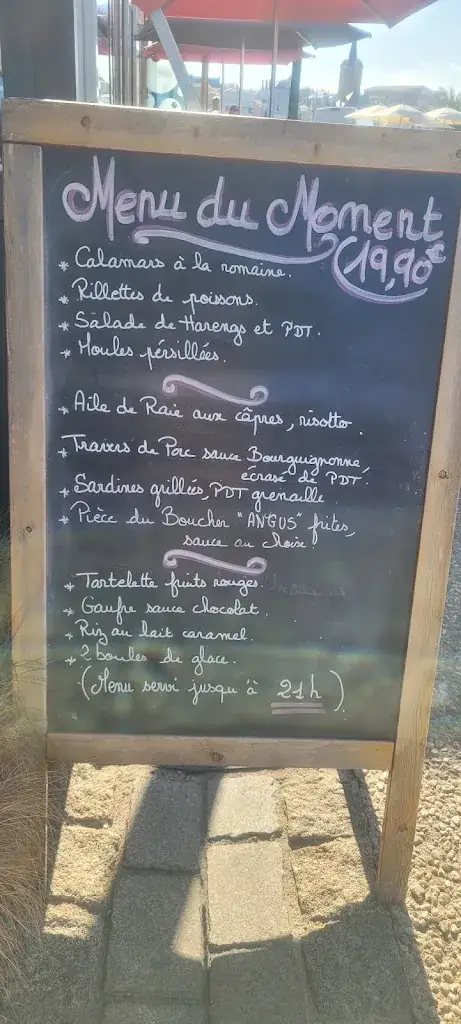 Menu du Moment
19,90€
* Calamars à la romaine.
* Rillettes de poissons.
* Salade de Harengs et PDT.
* Moules pérsillées.
* Aile de Raie aux câpres, risotto.
* Travers de Porc sauce Bourguignonne,
écrasé de PDT.
* Sardines grillées, PDT grenaille
* Pièce du Boucher "ANGUS" frites,
sauce au choix!
* Tartelette fruits rouges.
* Gaufre sauce chocolat.
* Riz au lait caramel.
* 2 boules de glace.
(Menu servi jusqu'à 21h)